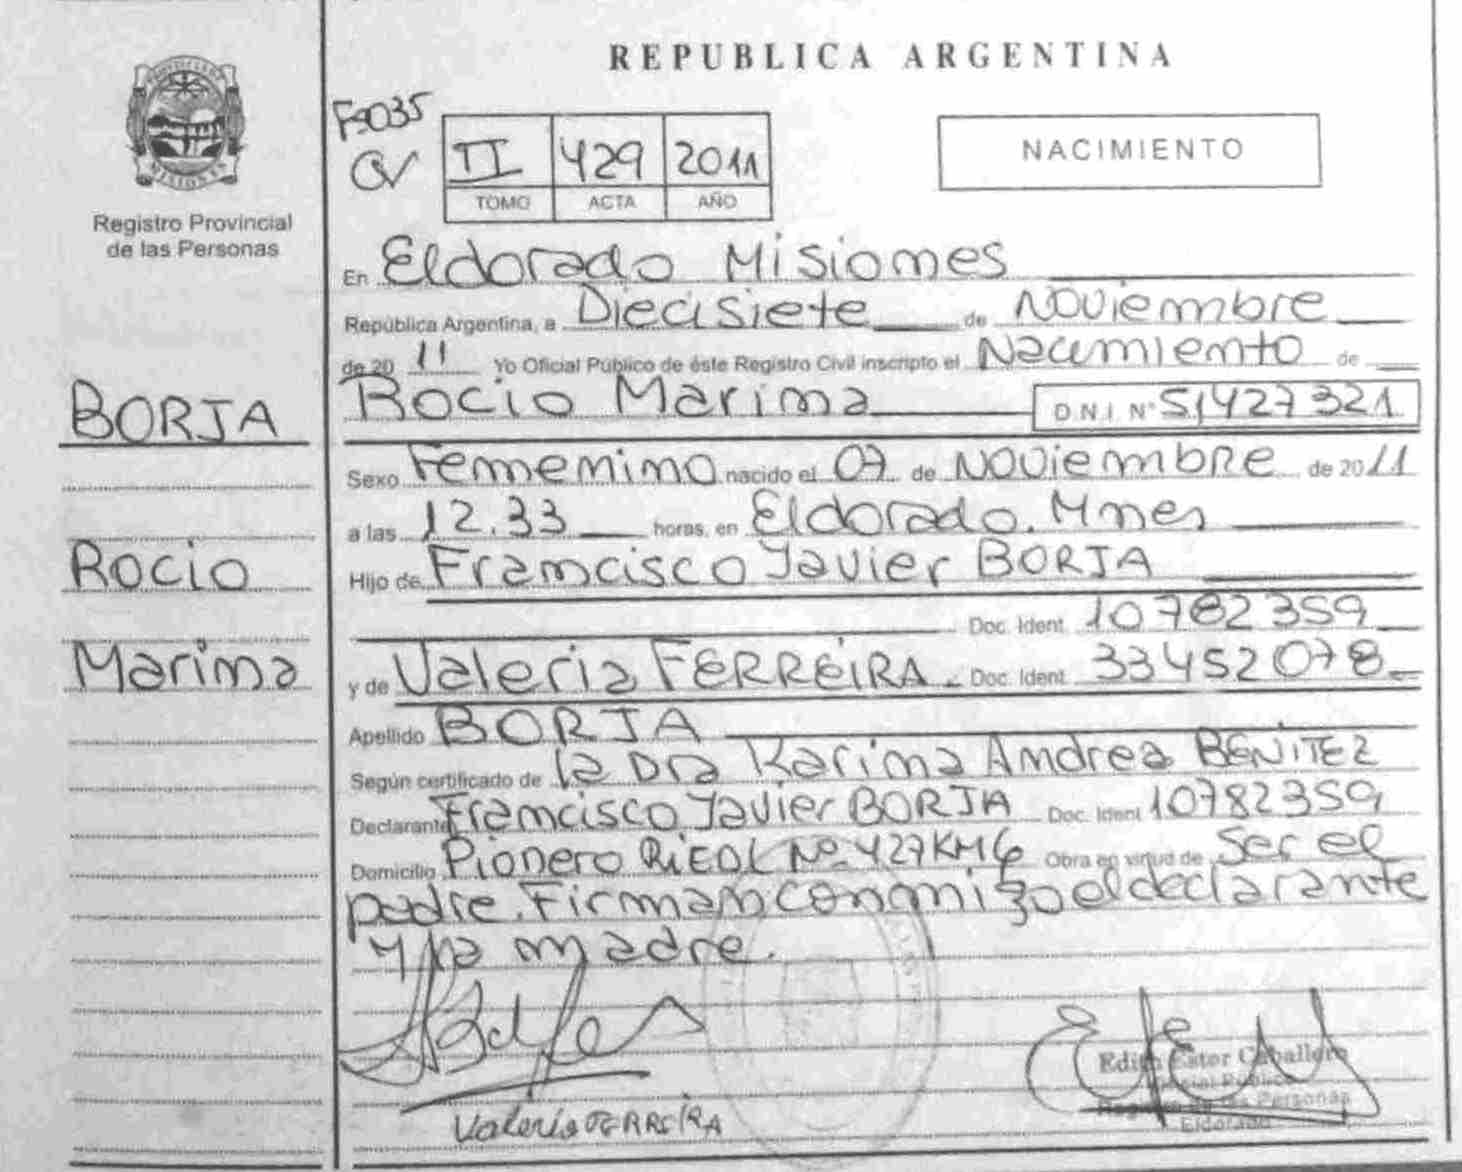 REPUBLICA ARGENTINA
PROVINCIA DE
MISIONES
Registro Provincial
de las Personas
II 429 2011
TOMO ACTA AÑO
NACIMIENTO
En Eldorado Misiones
República Argentina, a Diecisiete de Noviembre
de 2011 Yo Oficial Público de éste Registro Civil inscripto el Nacimiento de
Rocio Marina D.N.I. Nº 51427321
Sexo Femenino nacido el 07 de Noviembre de 2011
a las 12.33 horas, en Eldorado. Mnes
Hijo de Francisco Javier BORJA
Doc. Ident. 10782359
y de Valeria FERREIRA Doc. Ident. 33452078
Apellido BORJA
Según certificado de la Dra Karina Andrea BENITEZ
Declarante Francisco Javier BORJA Doc. Ident 10782359
Domicilio Pionero Nº 427 KM6 Obra en virtud de Ser el
padre. Firman conmigo el declarante
y la madre.
BORJA
Rocio
Marina
Valeria FERREIRA
Edith Ester Caballero
Oficial Público
Registro de las Personas
Eldorado